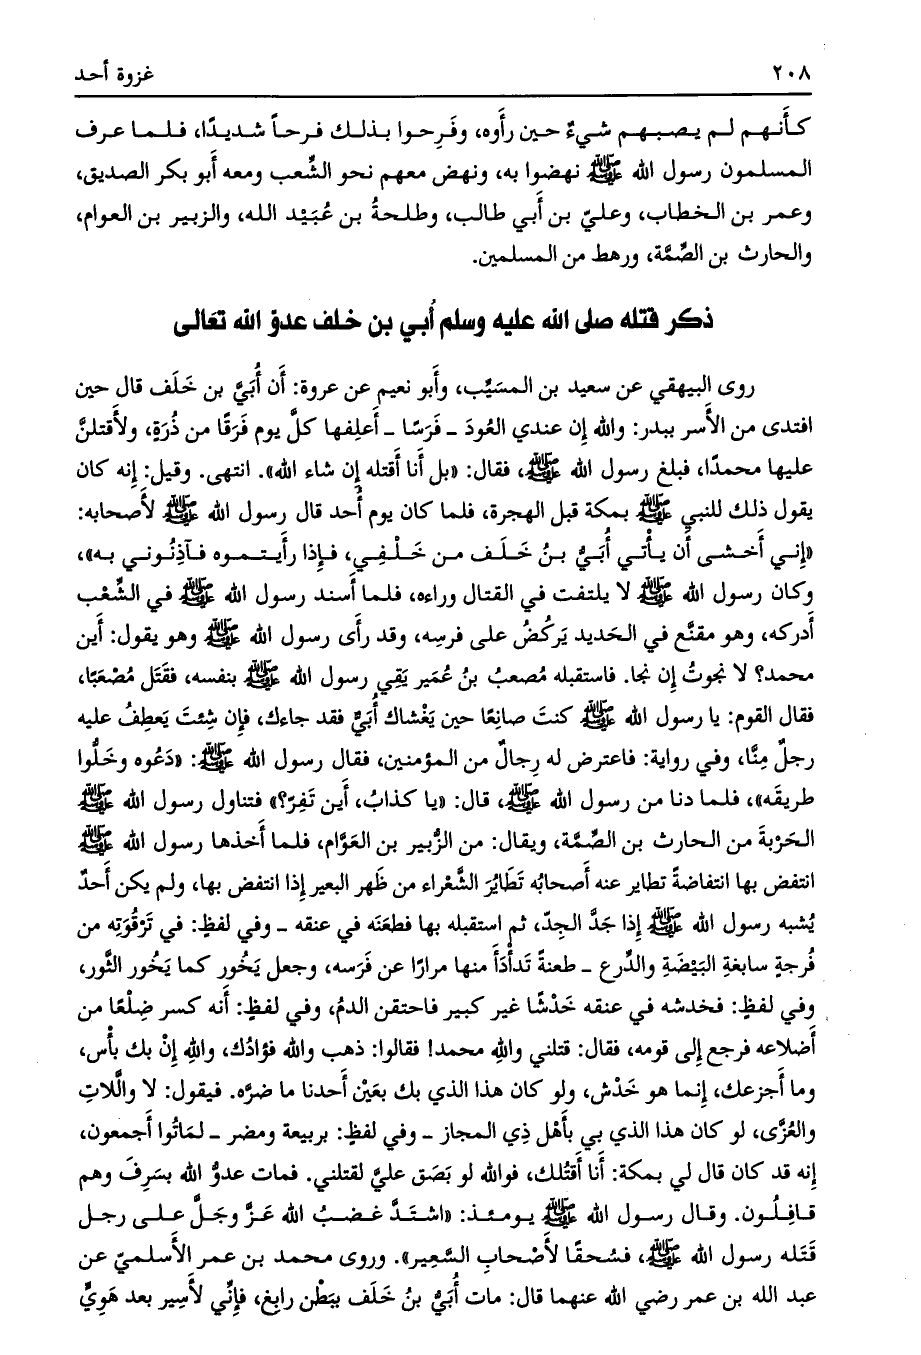 ٢٠٨ غزوة أحد
كأَنهم لم يصبهم شيءٌ حين رأَوه، وفَرِحوا بذلك فرحاً شديدًا، فلما عرف
المسلمون رسول الله ﷺ نهضوا به، ونهض معهم نحو الشِّعب ومعه أَبو بكر الصديق،
وعمر بن الخطاب، وعليّ بن أَبي طالب، وطلحةُ بن عُبَيْد الله، والزبير بن العوام،
والحارث بن الصِّمَّة، ورهط من المسلمين.
ذكر قتله صلى الله عليه وسلم أُبي بن خلف عدوّ الله تعالى
روى البيهقي عن سعيد بن المسَيِّب، وأَبو نعيم عن عروة: أَن أُبَيَّ بن خَلَف قال حين
افتدى من الأَسر ببدر: والله إن عندي العُودَ ـ فَرَسًا ـ أَعلِفها كلَّ يوم فَرَقًا من ذُرَةٍ، ولأَقتلنَّ
عليها محمدًا، فبلغ رسول الله ﷺ، فقال: «بل أَنا أَقتله إِن شاء الله». انتهى. وقيل: إِنه كان
يقول ذلك للنبي ﷺ بمكة قبل الهجرة، فلما كان يوم أُحد قال رسول الله ﷺ لأَصحابه:
«إِني أَخشى أَن يأْتي أُبَيُّ بنُ خَلَف من خَلْفِي، فإِذا رأَيتموه فآذِنُوني به»،
وكان رسول الله ﷺ لا يلتفت في القتال وراءه، فلما أَسند رسول الله ﷺ في الشِّعْب
أَدركه، وهو مقنَّع في الحَديد يَركُضُ على فرسِه، وقد رأَى رسول الله ﷺ وهو يقول: أَين
محمد؟ لا نجوتُ إِن نجا. فاستقبله مُصعبُ بنُ عُمَير يَقِي رسول الله ﷺ بنفسه، فقَتَل مُصْعَبًا،
فقال القوم: يا رسول الله ﷺ كنتَ صانِعًا حين يَغْشاك أُبَيٌّ فقد جاءك، فإِن شِئتَ يَعطِفُ عليه
رجلٌ مِنَّا، وفي رواية: فاعترض له رِجالٌ من المؤمنين، فقال رسول الله ﷺ: «دَعُوه وخَلُّوا
طريقَه»، فلما دنا من رسول الله ﷺ، قال: «يا كذابُ، أَين تَفِرّ؟» فتناول رسول الله ﷺ
الحَرْبةَ من الحارث بن الصِّمَّة، ويقال: من الزُّبير بن العَوَّام، فلما أَخذها رسول الله ﷺ
انتفض بها انتفاضةً تطاير عنه أَصحابُه تَطايُرَ الشَّعْراء من ظَهر البعير إِذا انتفض بها، ولم يكن أَحدٌ
يُشبه رسول الله ﷺ إِذا جَدَّ الجِدّ، ثم استقبله بها فطعَنَه في عنقه ـ وفي لفظٍ: في تَرْقُوَتِه من
فُرجةٍ سابغةِ البَيْضَةِ والدِّرع ـ طعنةً تَدأْدَأَ منها مرارًا عن فَرَسه، وجعل يَخُور كما يَخُور الثَّور،
وفي لفظٍ: فخدشه في عنقه خَدْشًا غير كبير فاحتقن الدمُ، وفي لفظٍ: أَنه كسر ضِلْعًا من
أَضلاعه فرجع إِلى قومه، فقال: قتلني واللهِ محمد! فقالوا: ذهب والله فؤادُك، واللهِ إِنْ بك بأْس،
وما أَجزعك، إِنما هو خَدْش، ولو كان هذا الذي بك بعَيْن أَحدنا ما ضرَّه. فيقول: لا والَّلاتِ
والعُزَّى، لو كان هذا الذي بي بأَهل ذِي المجاز ـ وفي لفظٍ: بربيعة ومضر ـ لمَاتُوا أَجمعون،
إنه قد كان قال لي بمكة: أَنا أَقتُلك، فوالله لو بَصَق عليَّ لقتلني. فمات عدوُّ الله بسَرِفَ وهم
قافِلُون. وقال رسول الله ﷺ يومئذ: «اشتَدَّ غضبُ الله عَزَّ وجَلَّ على رجل
قَتَله رسول الله ﷺ، فسُحقًا لأَصْحابِ السَّعِير». وروى محمد بن عمر الأَسلميّ عن
عبد الله بن عمر رضي الله عنهما قال: مات أُبَيُّ بنُ خَلَف ببَطْن رابغ، فإِنِّي لأَسِير بعد هَوِيٍّ